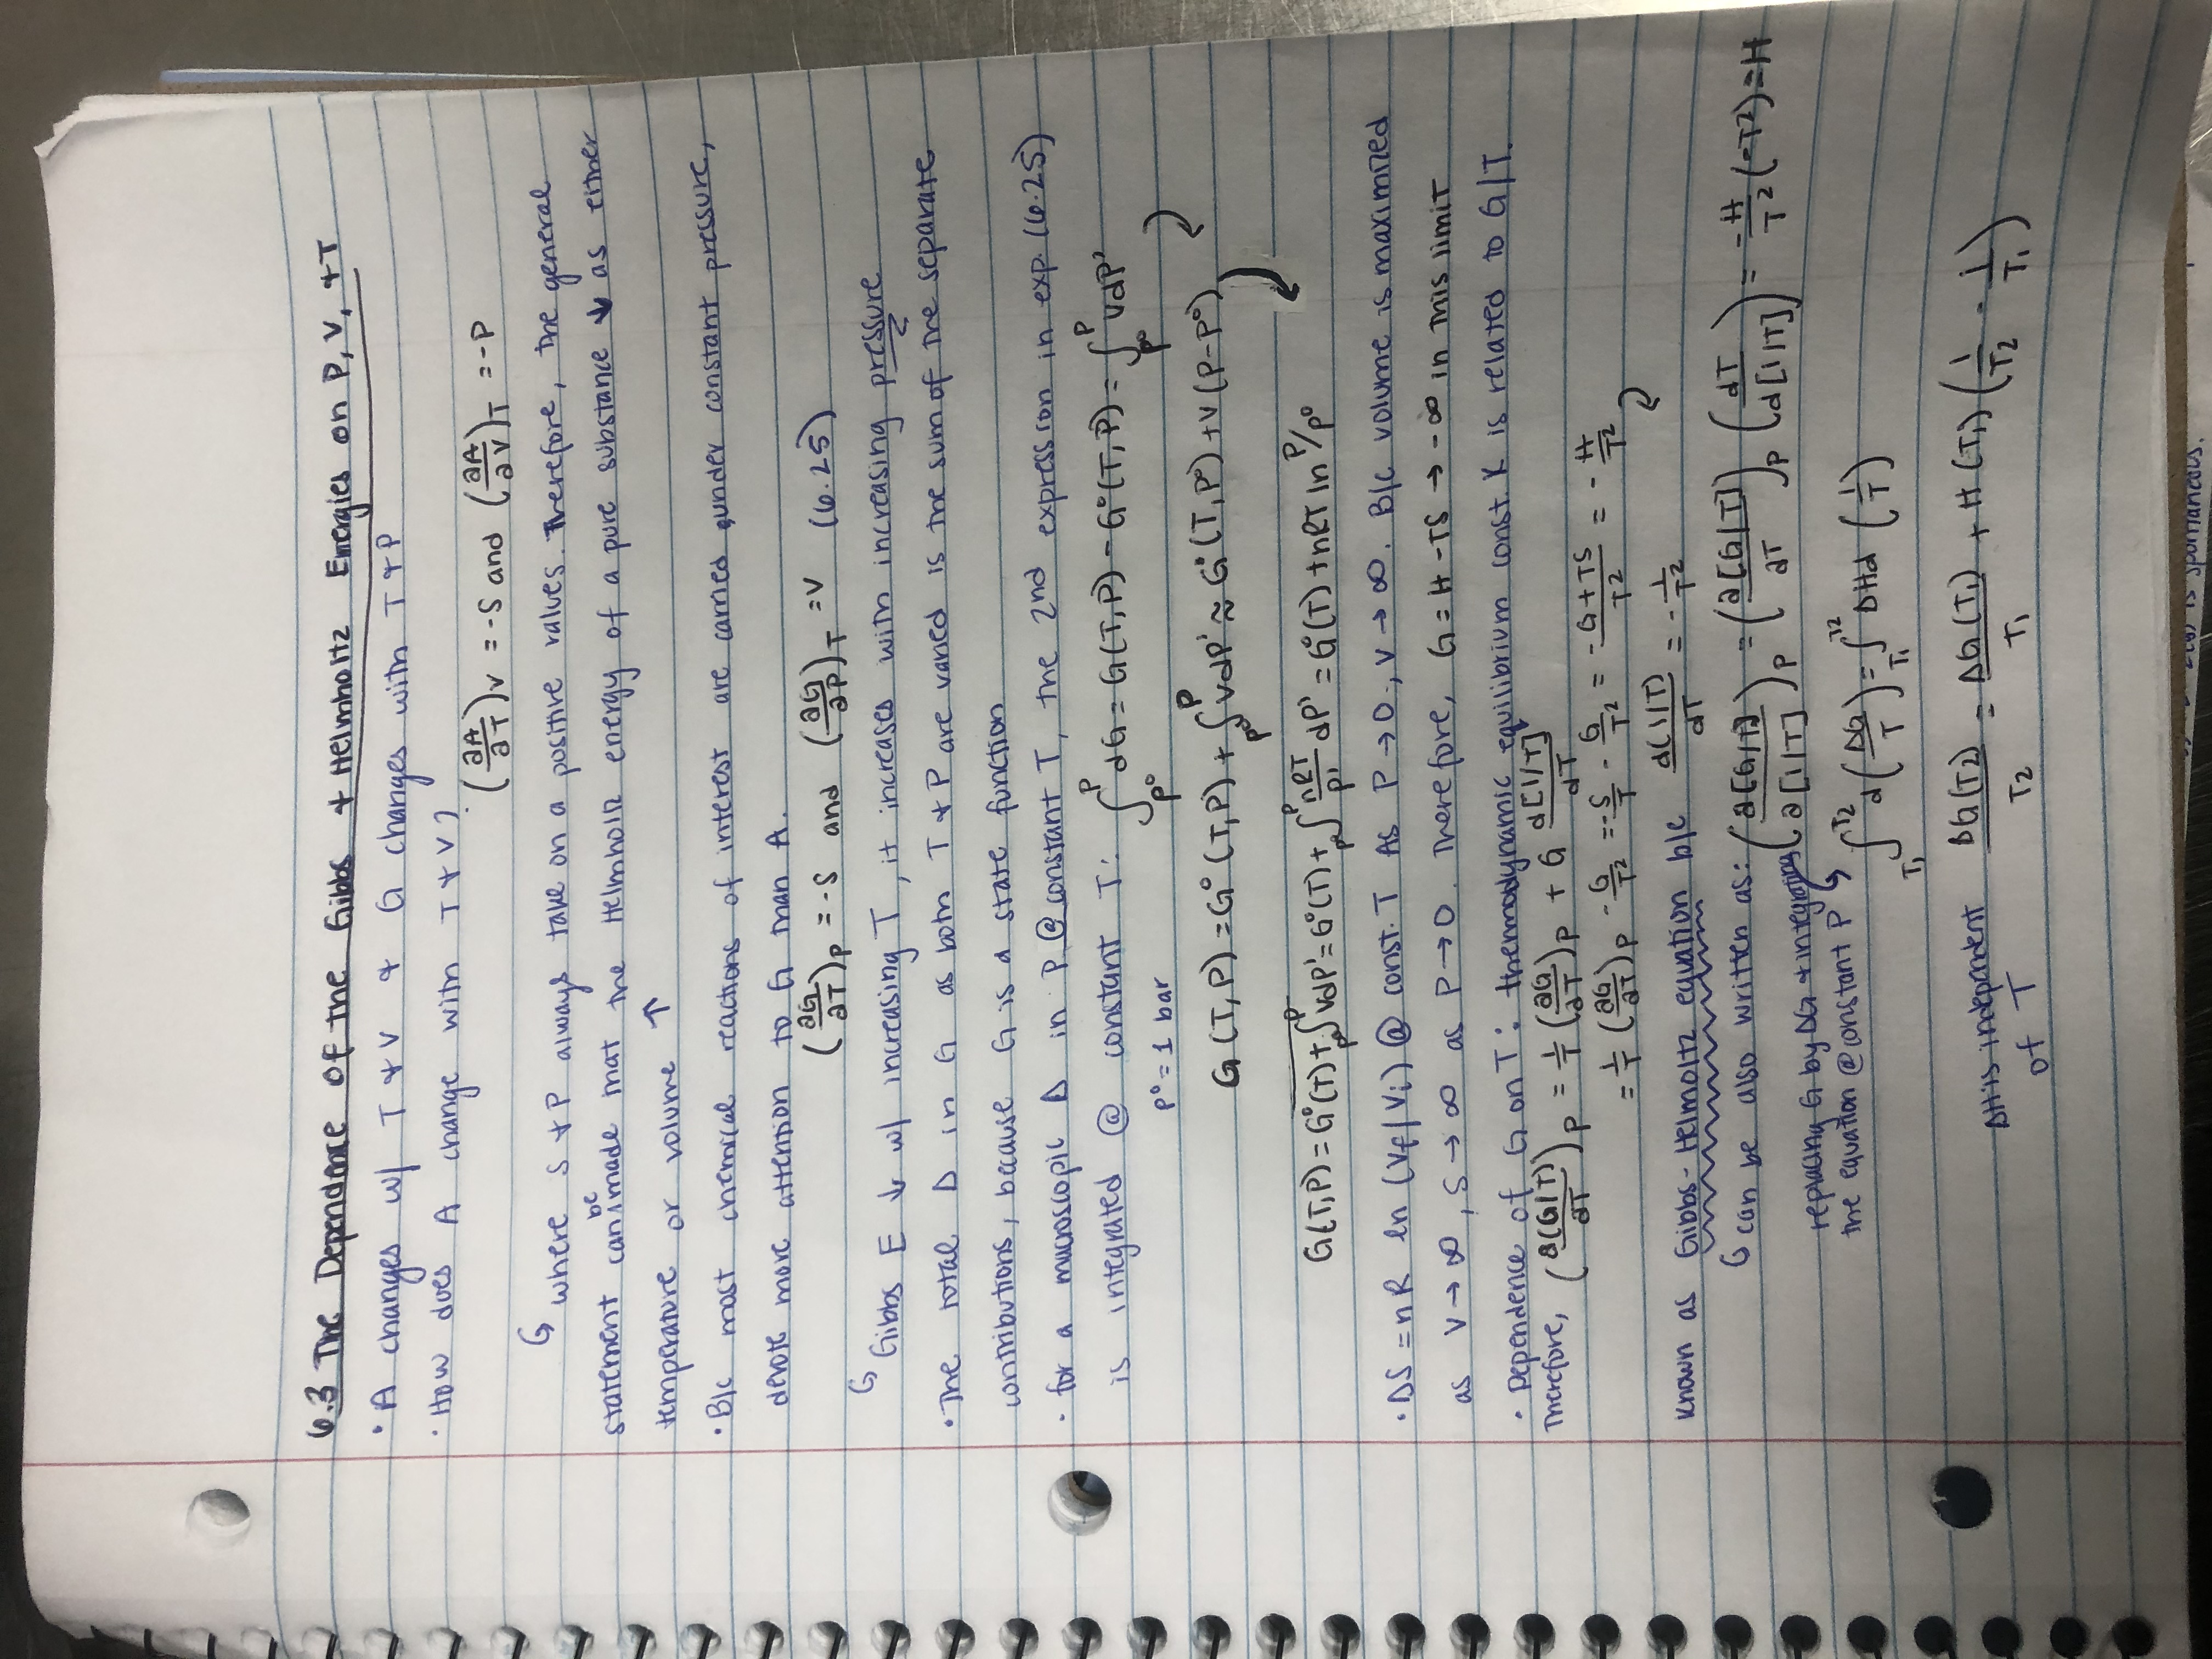 6.3 The Dependence of the Gibbs + Helmholtz Energies on P, V, + T
• A changes w/ T + V + G changes with T + P
• How does A change with T + V?
(∂A/∂T)V = -S and (∂A/∂V)T = -P
↳ where S + P always take on a positive values. Therefore, the general
statement can be made that the Helmholtz energy of a pure substance ↓ as either
temperature or volume ↑
• B/c most chemical reactions of interest are carried under constant pressure,
devote more attention to G than A.
(∂G/∂T)P = -S and (∂G/∂P)T = V (6.25)
↳ Gibbs E ↓ w/ increasing T, it increases with increasing pressure
• The total Δ in G as both T + P are varied is the sum of the separate
contributions, because G is a state function
• for a macroscopic Δ in P @ constant T, the 2nd expression in exp. (6.25)
is integrated @ constant T: ∫P°^P dG = G(T,P) - G°(T,P) = ∫P°^P VdP'
P° = 1 bar
G(T,P) = G°(T,P) + ∫P°^P VdP' ≈ G°(T,P°) + V(P-P°)
G(T,P) = G°(T) + ∫P°^P VdP' = G°(T) + ∫P°^P nRT/P' dP' = G°(T) + nRT ln P/P°
• ΔS = nR ln (Vf/Vi) @ const. T As P → 0, V → ∞. B/c volume is maximized
as V → ∞, S → ∞ as P → 0. Therefore, G = H - TS → -∞ in this limit
• Dependence of G on T: thermodynamic equilibrium const. K is related to G/T.
Therefore, (∂(G/T)/∂T)P = 1/T (∂G/∂T)P + G d[1/T]/dT
= 1/T (∂G/∂T)P - G/T² = -S/T - G/T² = -G+TS/T² = -H/T²
Known as Gibbs-Helmoltz equation b/c d(1/T)/dT = -1/T²
↳ can be also written as: (∂[G/T]/∂[1/T])P = (∂[G/T]/∂T)P (dT/d[1/T]) = -H/T² (-T²) = H
replacing G by ΔG + integrating
the equation @ constant P ↴ ∫T1^T2 d(ΔG/T) = ∫T1^T2 ΔHd (1/T)
ΔH is independent
of T
ΔG(T2)/T2 = ΔG(T1)/T1 + H(T1)(1/T2 - 1/T1)
is spontaneous.